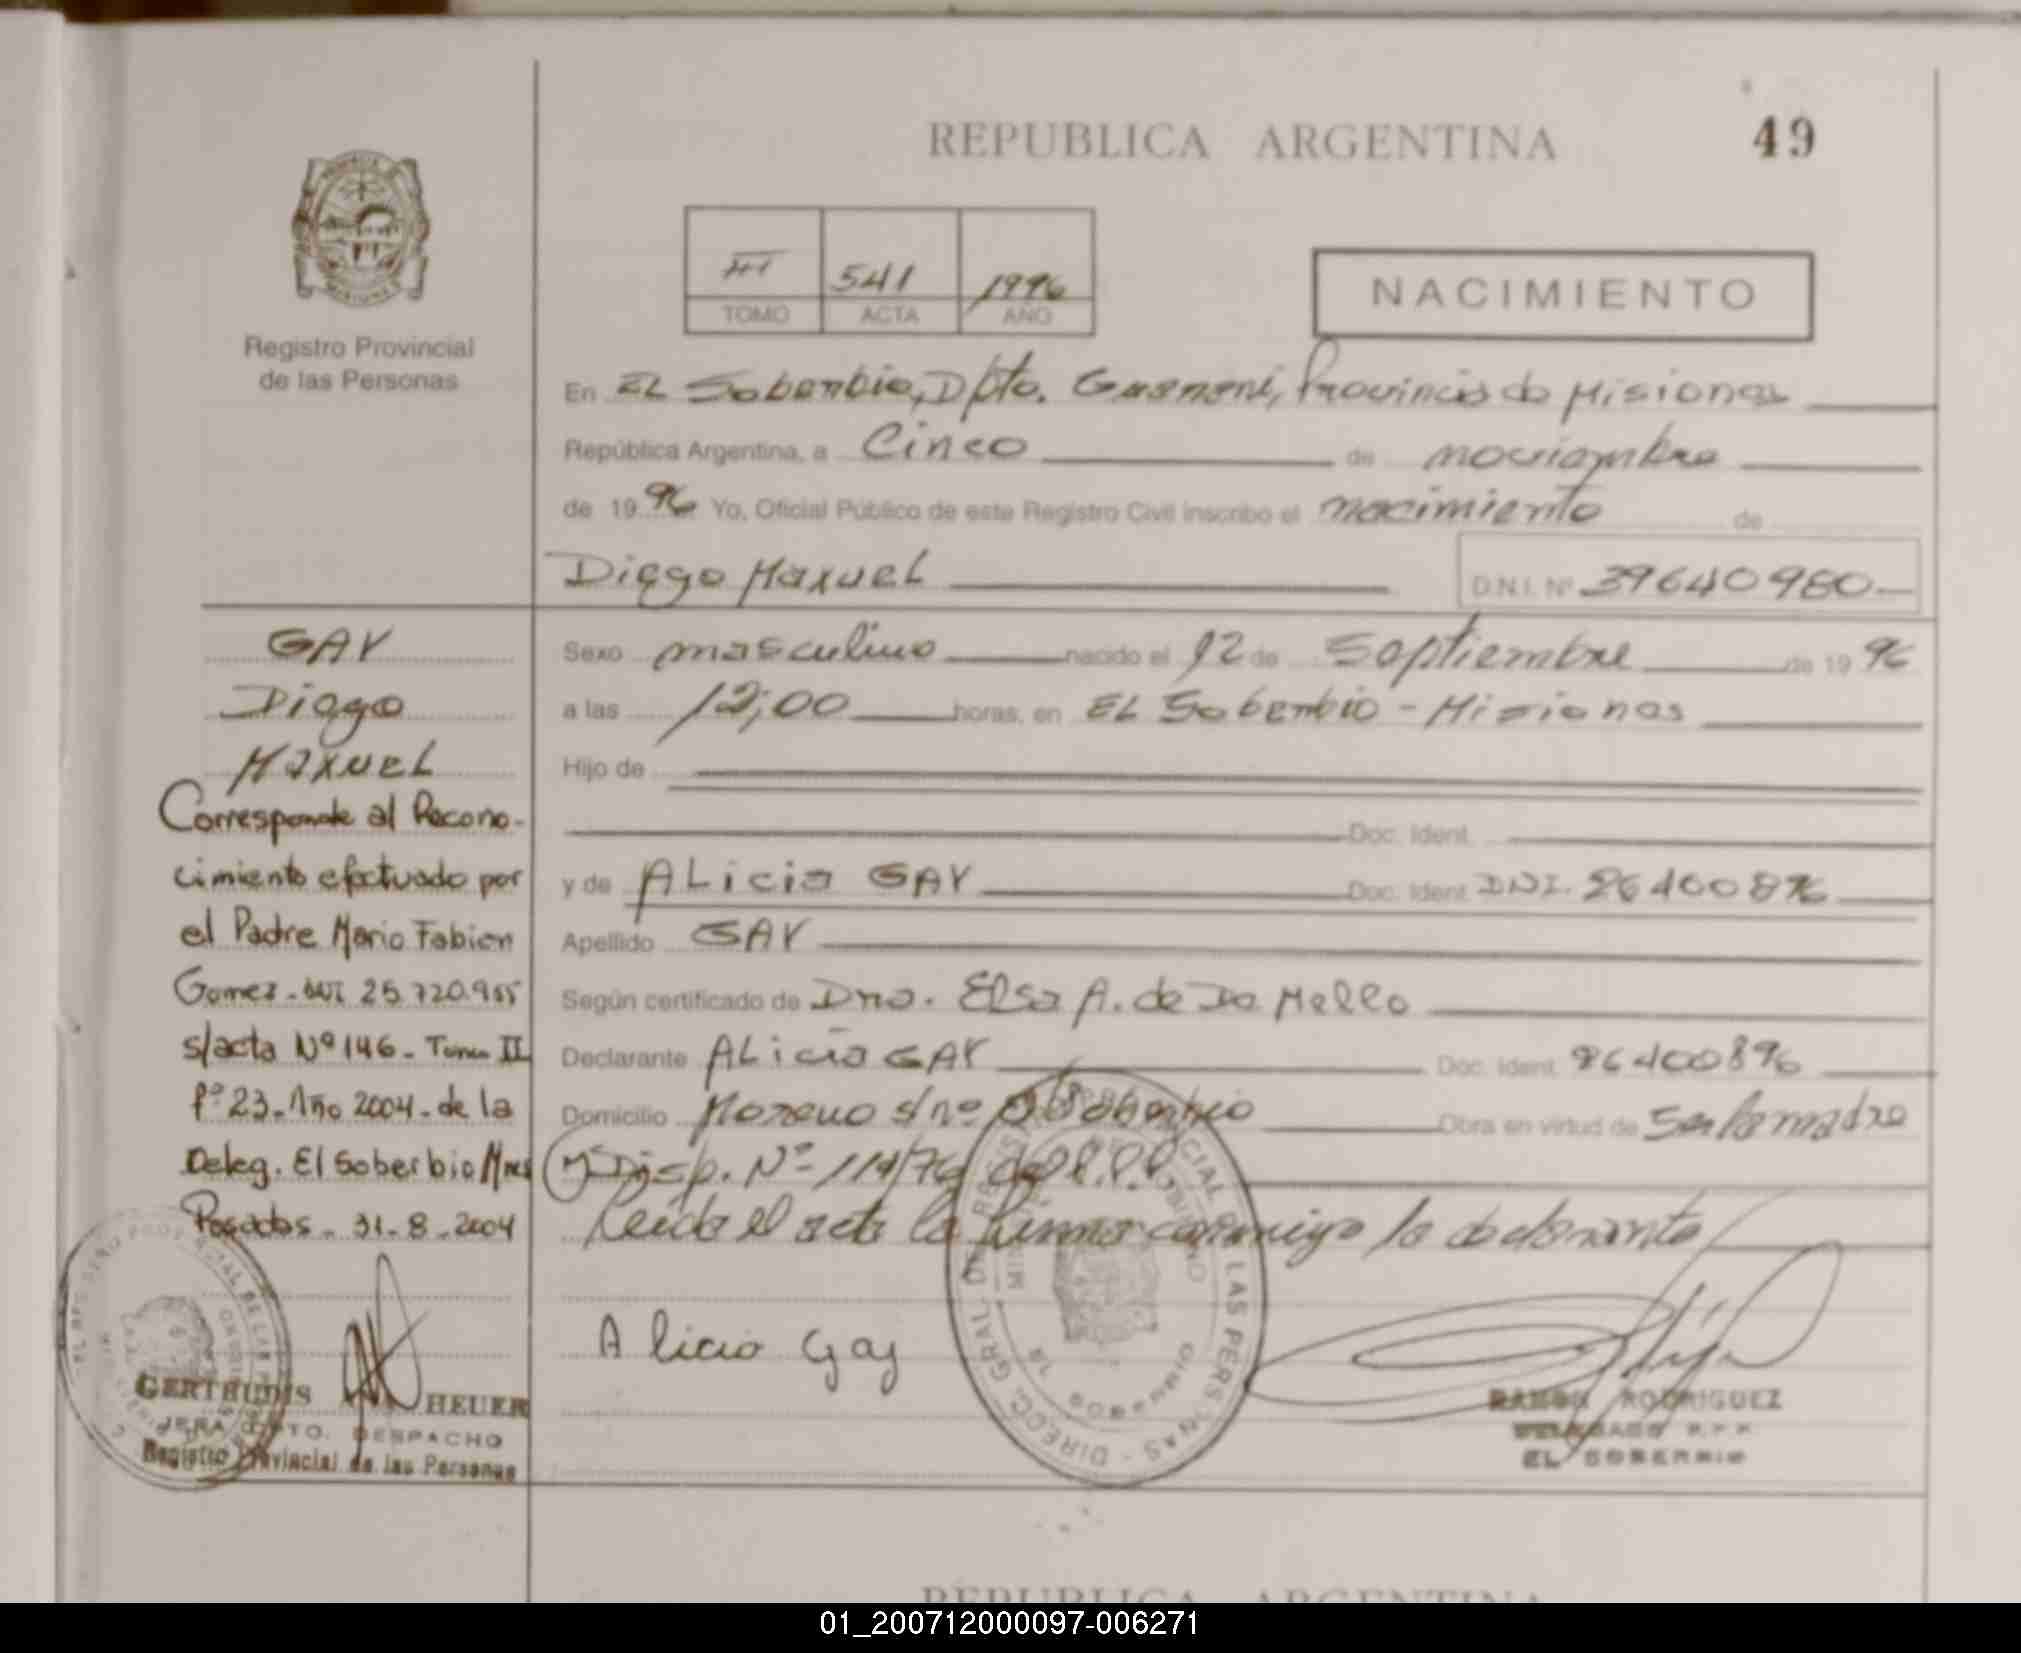 REPUBLICA ARGENTINA
49
MISIONES
Registro Provincial
de las Personas
III 541 1996
TOMO ACTA AÑO
NACIMIENTO
En EL Soberbio, Dpto. Guaraní, Provincia de Misiones
República Argentina, a Cinco de noviembre
de 1996 Yo, Oficial Público de este Registro Civil inscribo el nacimiento de
Diego Maxuel D.N.I. Nº 39640980
Sexo masculino nacido el 12 de Septiembre de 1996
a las 12;00 horas, en EL Soberbio - Misiones
Hijo de
Doc. Ident.
y de ALicia GAY Doc. Ident. DNI. 26400896
Apellido GAY
Según certificado de Dra. Elsa A. de Da Mello
Declarante ALicia GAY Doc. Ident. 26400896
Domicilio Moreno s/nº El Soberbio Obra en virtud de Ser la madre
y Disp. Nº 114/76 del R.P.P.
Leída el acta la firma conmigo la declarante
Alicia Gay
RAMON RODRIGUEZ
DELEGADO R.P.P.
EL SOBERBIO
GAY
Diego
MAXUEL
Corresponde al Recono-
cimiento efectuado por
el Padre Mario Fabian
Gomez - DNI 25.720.955
s/acta Nº 146 - Tomo II
fº 23 - Año 2004 - de la
Deleg. El Soberbio Mnes
Posadas - 31-8-2004
GERTRUDIS HEUER
JEFA DPTO. DESPACHO
Registro Provincial de las Personas
REPUBLICA ARGENTINA
01_200712000097-006271